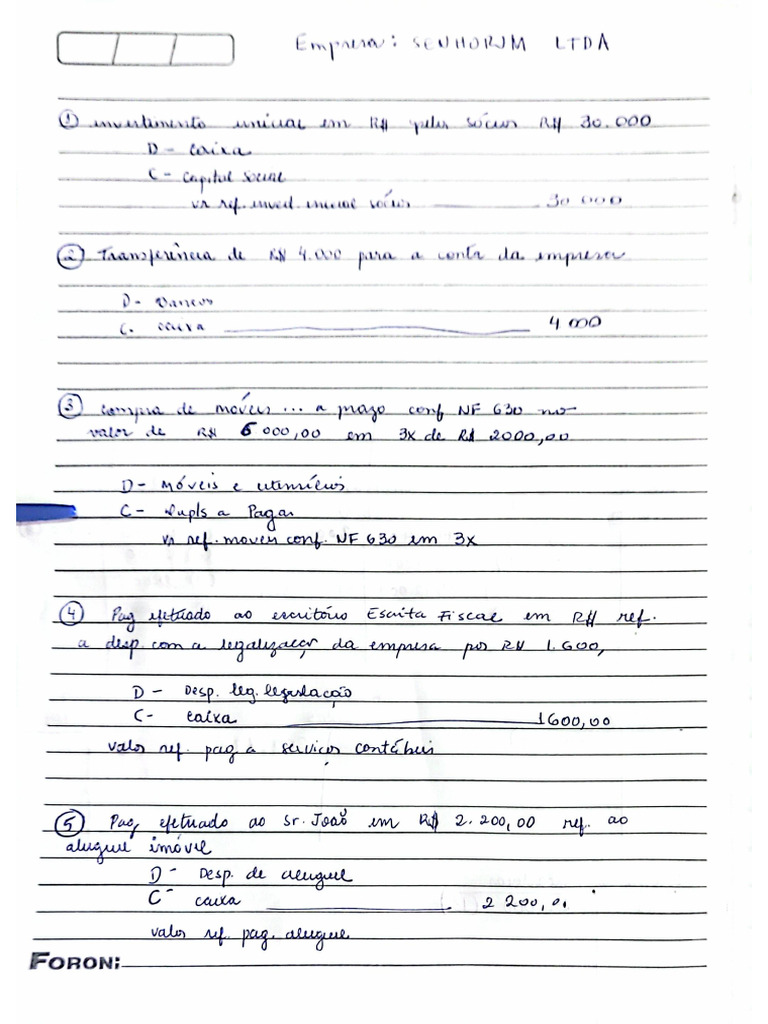 Empresa: SENHORIM LTDA
① investimento inicial em R$ pelos sócios R$ 30.000
D - Caixa
C - Capital Social
vr ref. invest. inicial sócios 30 000
② Transferência de R$ 4.000 para a conta da empresa
D - Bancos
C. caixa 4 000
③ compra de móveis ... a prazo conf NF 630 no
valor de R$ 6 000,00 em 3x de R$ 2000,00
D - Móveis e utensílios
C - Dupls a Pagar
vr ref. moveis conf. NF 630 em 3x
④ Pag efetuado ao escritório Escrita Fiscal em R$ ref.
a desp. com a legalização da empresa por R$ 1.600,
D - Desp. leg. legislação
C - caixa 1600,00
valor ref. pag a serviços contábeis
⑤ Pag efetuado ao Sr. João em R$ 2.200,00 ref. ao
aluguel imóvel
D - Desp. de aluguel
C - caixa 2 200,0
valor ref. pag. aluguel
FORONI